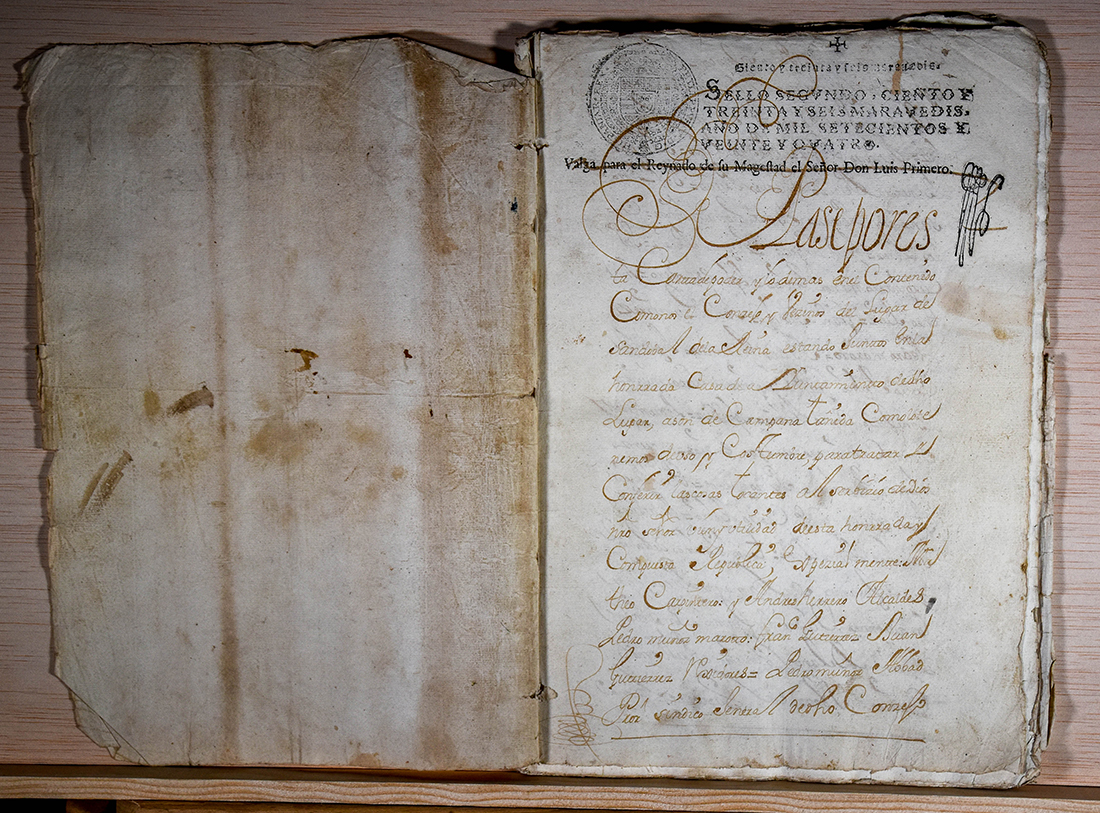 Siento y treinta y seis maravedis.
SELLO SEGVNDO, CIENTO Y
TREINTA Y SEIS MARAVEDIS,
AÑO DE MIL SETECIENTOS Y
VEINTE Y QVATRO.
Valga para el Reynado de su Magestad el Señor Don Luis Primero.
Sasepores
ta Contradesorte, y lo demas enel Contenido
Comonos el Conzejo y Vezinos del Lugar de
Sandobal dela Reina estando Juntos en la
honrrada Casa de Aiuntamiento de dho
Lugar, a son de Campana tañida Como lo te
nemos de uso y Costumbre para tratar y
Conferir las cosas tocantes al serbizio de Dios
nro señor vien y utilidad desta honrrada y
Compuesta Republica, Espezialmente: Ma
theo Carpintero: y Andres herrero Alcaldes
Pedro muñoz maroto: fran Gutierrez Juan
Gutierrez Rexidores = Pedro muñoz Abad
Pror sindico General de dho Conzejo